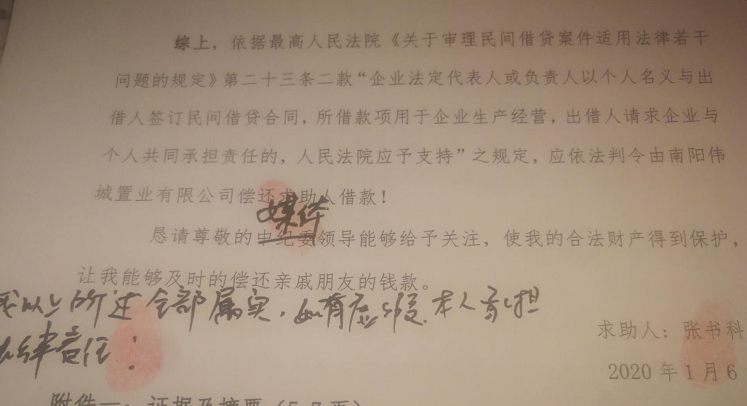 综上，依据最高人民法院《关于审理民间借贷案件适用法律若干
问题的规定》第二十三条二款“企业法定代表人或负责人以个人名义与出
借人签订民间借贷合同，所借款项用于企业生产经营，出借人请求企业与
个人共同承担责任的，人民法院应予支持”之规定，应依法判令由南阳伟
城置业有限公司偿还求助人借款！
媒体
恳请尊敬的中纪委领导能够给予关注，使我的合法财产得到保护，
让我能够及时的偿还亲戚朋友的钱款。
我以上所述全部属实，如有虚假，本人承担
法律责任：
求助人：张书科
2020年1月6
附件一：证据及摘要（5-7页）